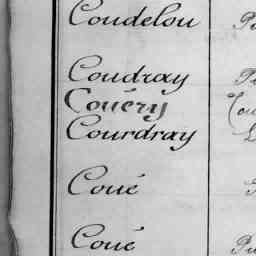 Coudelou
Coudray
Couëry
Courdray
Coué
Coué